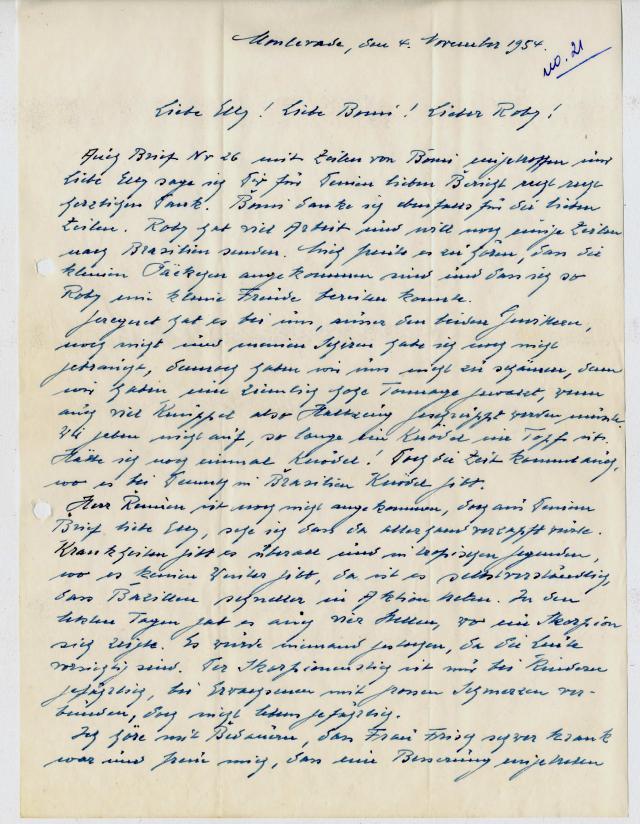 Monlevade, den 4. November 1954.
no. 21
Liebe Elly! Liebe Bomi! Lieber Roby!
Auch Brief Nr 26 mit Zeilen von Bomi eingetroffen und
liebe Elly sage ich Dir für Deinen lieben Bericht recht recht
herzlichen Dank. Bomi danke ich ebenfalls für die lieben
Zeilen. Roby hat viel Arbeit und will noch einige Zeilen
nach Brasilien senden. Mich freute es zu hören, dass die
kleinen Päckchen angekommen sind und dass ich so
Roby eine kleine Freude bereiten konnte.
Geregnet hat es bei uns, ausser den beiden Gewittern,
noch nicht und meinen Schirm habe ich noch nicht
gebraucht, dennoch haben wir uns nicht zu schämen, denn
wir haben eine ziemlich hohe Tonnage gewalzt, wenn
auch viel Knüppel also Halbzeug geschruppt werden müsste
Wir geben nicht auf, so lange ein Knödel im Topf ist.
Hätte ich noch einmal Knödel! Doch die Zeit kommt auch,
wo es bei in Brasilien Knödel gibt.
Herr ist noch nicht angekommen, doch aus Deinem
Brief liebe Elly, sehe ich dass da allerhand verzapft wurde.
Krankheiten gibt es überall und in tropischen Gegenden,
wo es keinen Winter gibt, da ist es selbstverständlich,
dass Bazillen schneller in Aktion treten. In den
letzten Tagen gab es auch vier Stellen, wo ein Skorpion
sich zeigte. Es wurde niemand gestochen, da die Leute
vorsichtig sind. Der Skorpionenstich ist nur bei Kindern
gefährlich, bei Erwachsenen mit grossen Schmerzen ver-
bunden, doch nicht lebensgefährlich.
Ich höre mit Bedauern, dass Frau Frisch schwer krank
war und freue mich, dass eine Besserung eingetreten